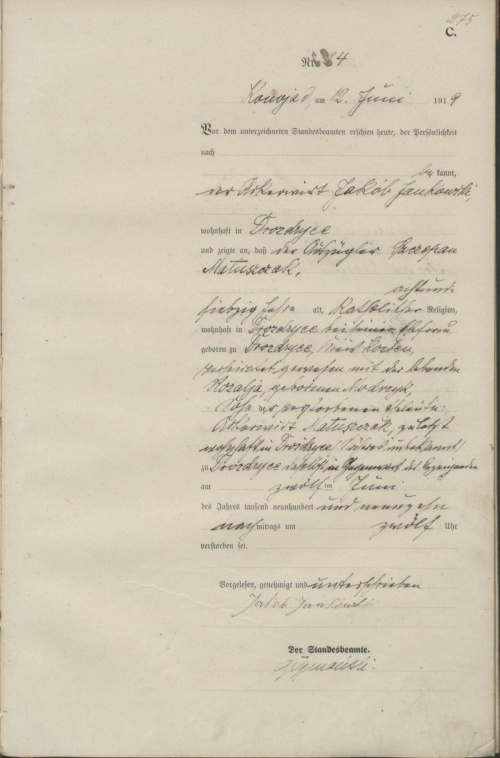 275
C.
Nr. 24
Konojad, am 12. Juni 1919
Vor dem unterzeichneten Standesbeamten erschien heute, der Persönlichkeit
nach
be kannt,
der Ackerwirt Jakób Jankowski,
wohnhaft in Drozdzyce
und zeigte an, daß der Auszügler Szczepan
Matuszczak,
achtund-
siebzig Jahre alt, katholischer Religion,
wohnhaft in Drozdzyce bei seiner Ehefrau
geboren zu Drozdzyce, Kreis Kosten,
verheiratet gewesen mit der lebenden
Rozalja, geborenen
Sohn der verstorbenen Eheleute
Ackerwirt Matuszczak, zuletzt
wohnhaft in Drozdzyce (Näheres unbekannt)
zu Drozdzyce in Gegenwart des Anzeigenden
am zwölften Juni
des Jahres tausend neunhundert und neunzehn
nachmittags um zwölf Uhr
verstorben sei.
Vorgelesen, genehmigt und unterschrieben
Jakób Jankowski
Der Standesbeamte.